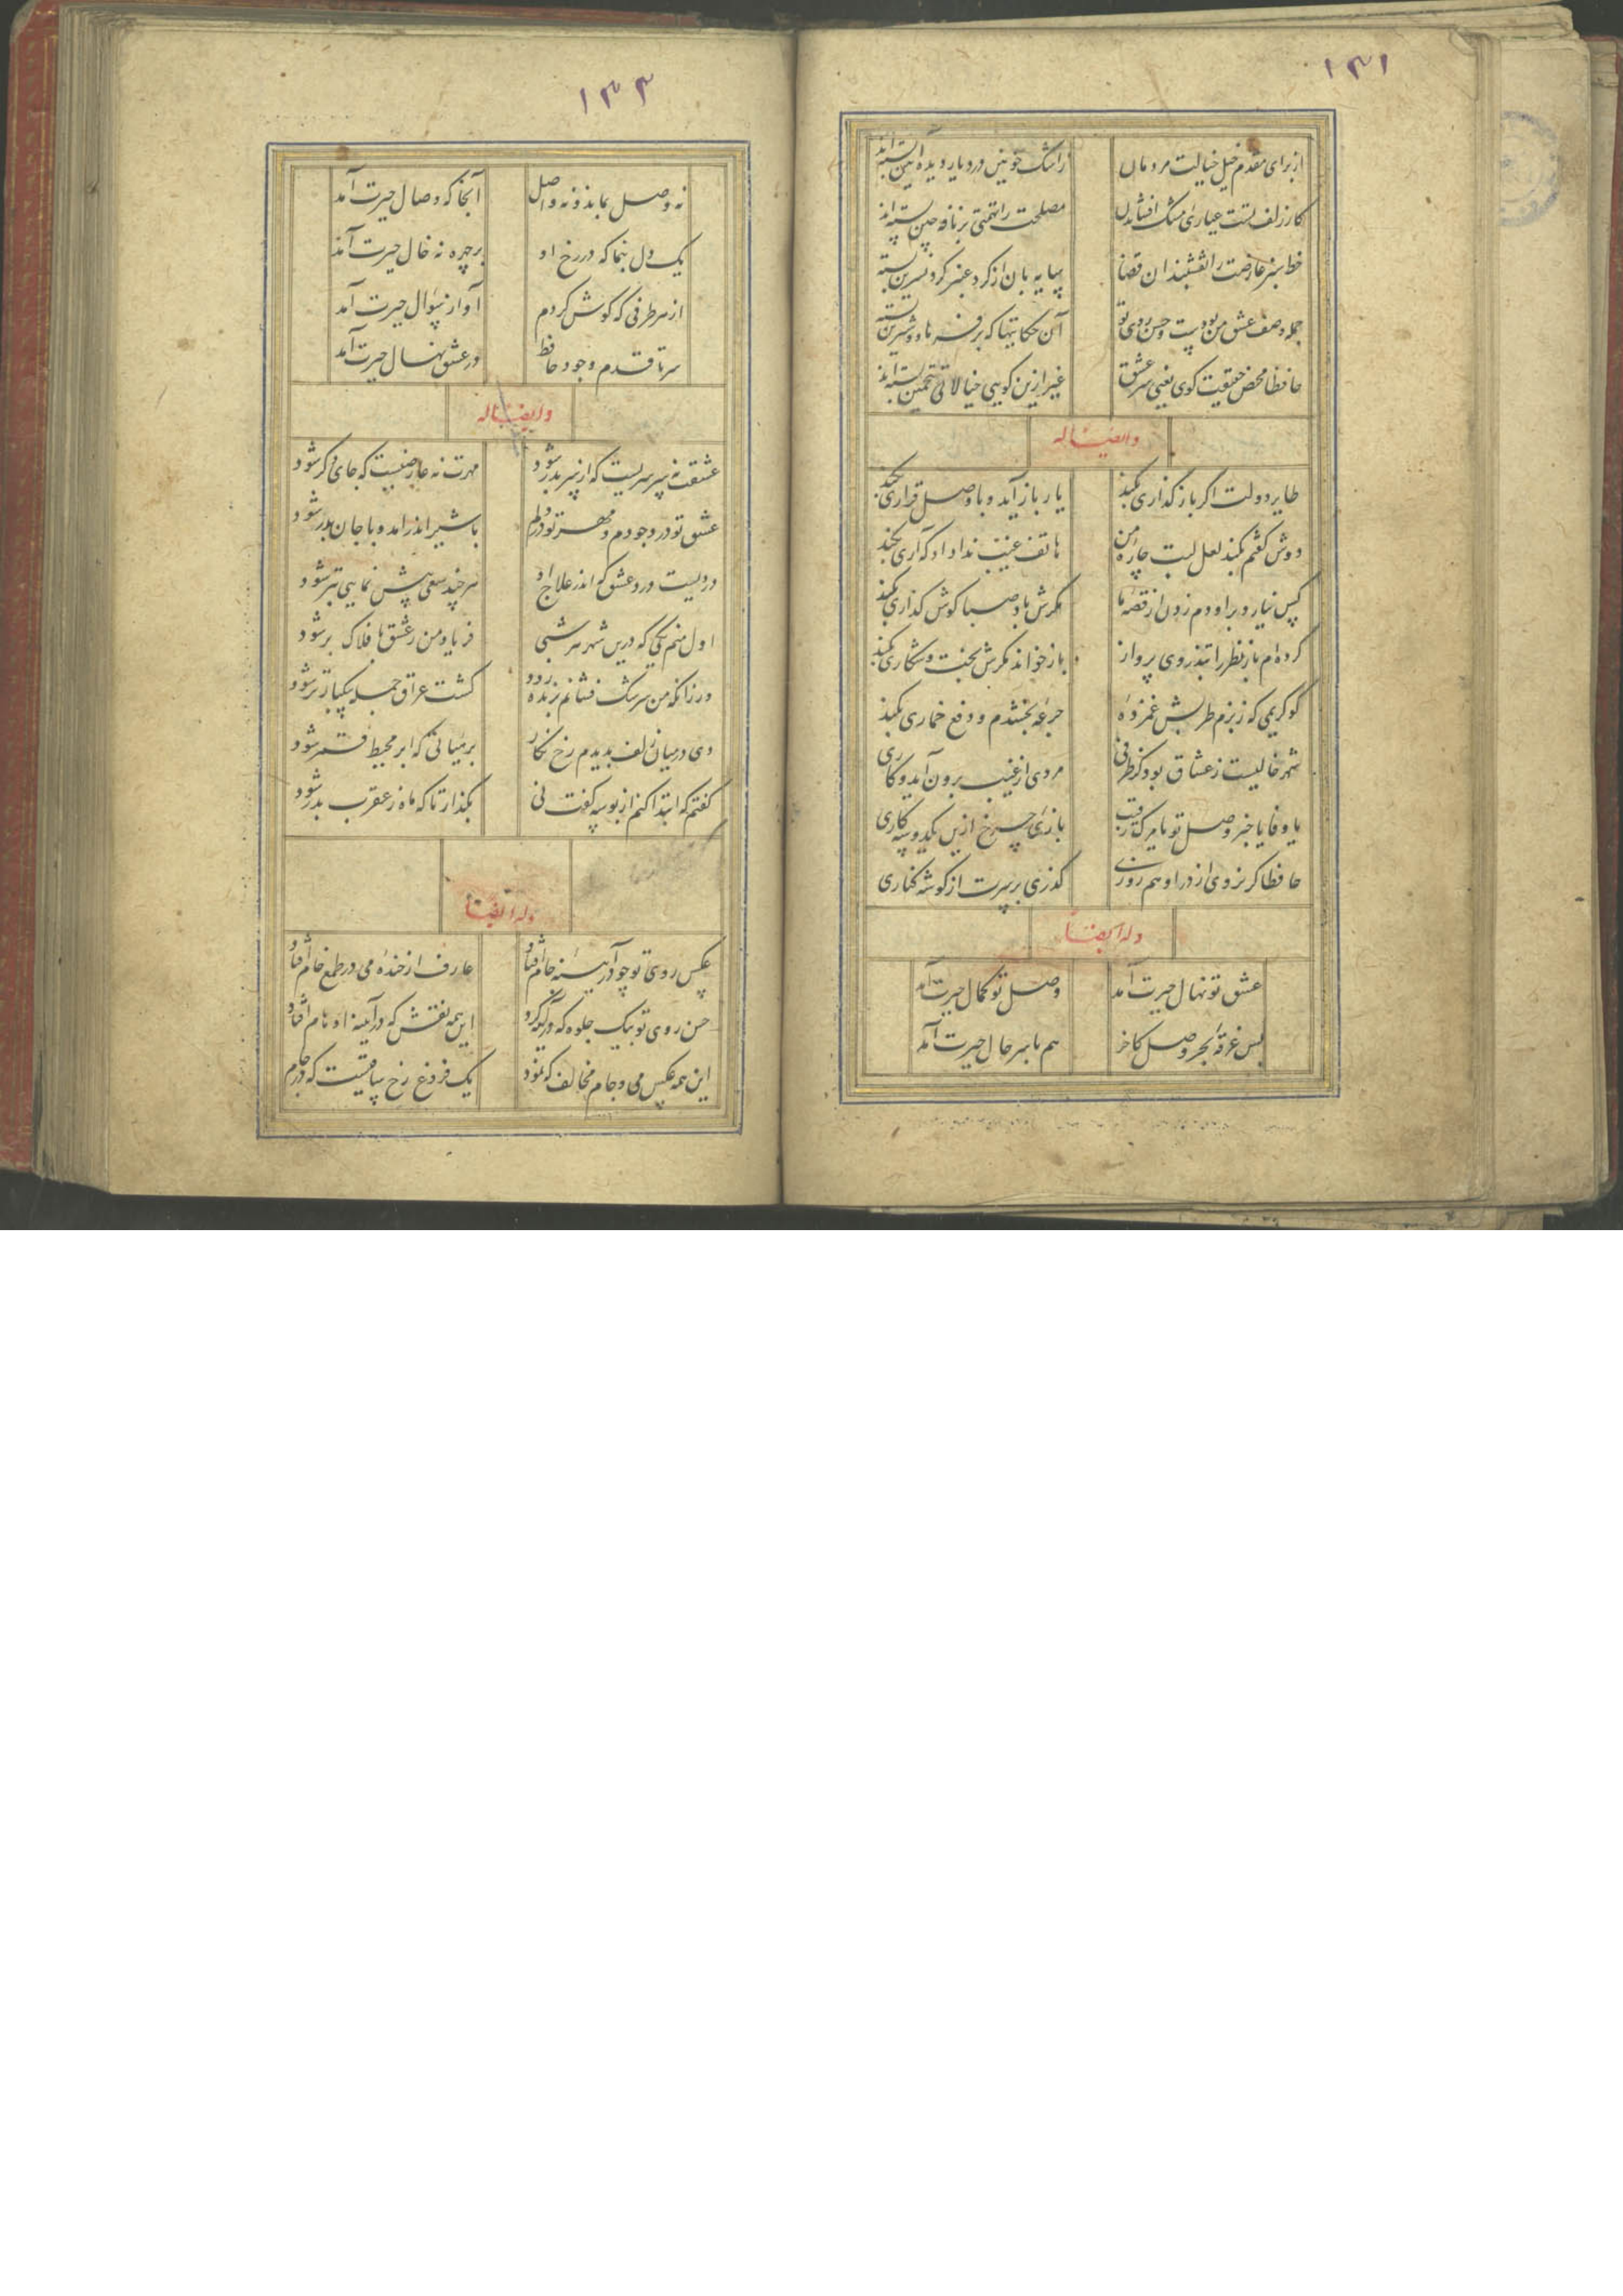 ۱۳۱
از برای مقدم خیل خیالت مردمان
ز اشک خونین در دیار دیده آیین بسته‌اند
کار زلف تست عیاری و مشک افشاندن
مصلحت را تهمتی بر نافه چین بسته‌اند
خط سبز عارضت را نقشبندان قضا
سایه بان از کرد عنبر کرد نسرین بسته
جمله وصف عشق من بودست و حسن روی تو
آن حکایتها که بر فرهاد و شیرین بسته
حافظا محض حقیقت کوی یعنی سر عشق
غیر ازین کویی خیالاتی بتخمین بسته‌اند
و ایضا له
طایر دولت اگر باز کذاری بکند
یار باز آید و با وصل قراری بکند
دوش کفتم بکند لعل لبت چاره من
هاتف غیب ندا داد که آری بکند
کس نیارد بر او دم زدن از قصه ما
مکرش باد صبا کوش کذاری بکند
کرده‌ام باز نظر را بتذروی پرواز
باز خواند مکرش بخت و شکاری بکند
کو کریمی که ز بزم طربش غمزده
جرعه بخشدم و دفع خماری بکند
شهر خالیست ز عشاق بود کز طرفی
مردی از غیب برون آید و کاری
یا وفا یا خبر وصل تو یا مرک رقیب
بازی چرخ ازین یکدو سه کاری
حافظا کر نروی از در او هم روزی
کذری بر سرت از کوشه کناری
وله ایضا
عشق تو نهال حیرت آمد
وصل تو کمال حیرت آمد
بس غرقه بحر وصل کاخر
هم با سر حال حیرت آمد
۱۳۳
نه وصل بماند و نه واصل
آنجا که وصال حیرت آمد
یک دل بنما که در رخ او
بر چهره نه خال حیرت آمد
از هر طرفی که کوش کردم
آواز سؤال حیرت آمد
سر تا قدم وجود حافظ
در عشق نهال حیرت آمد
و ایضا له
عشقت نه سرسریست که از سر بدر شود
مهرت نه عارضیست که جای دکر شود
عشق تو در وجودم و مهر تو در دلم
با شیر اندر آمد و با جان بدر شود
دردیست درد عشق که اندر علاج او
هر چند سعی بیش نمایی بتر شود
اول منم یکی که درین شهر هر شبی
فریاد من ز عشق بافلاک بر شود
ور زانکه من سرشک فشانم بزنده رود
کشت عراق جمله بیکبار تر شود
دی در میان زلف بدیدم رخ نکار
بر هیاتی که ابر محیط قمر شود
کفتم که ابتدا کنم از بوسه کفت نی
بکذار تا که ماه ز عقرب بدر شود
وله ایضا
عکس روی تو چو در آینه جام افتاد
عارف از خنده می در طمع خام افتاد
حسن روی تو بیک جلوه که در آینه کرد
این همه نقش که در آینه اوهام افتاد
این همه عکس می و جام مخالف که نمود
یک فروغ رخ ساقیست که در جام